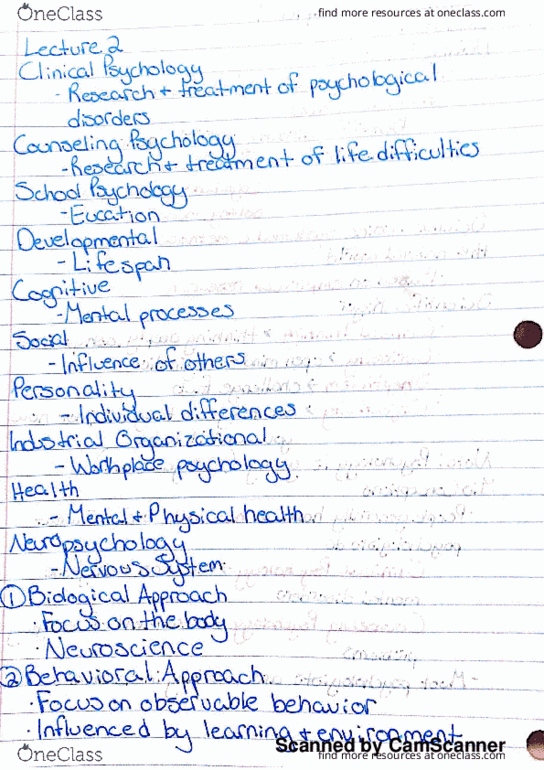 OneClass
find more resources at oneclass.com
Lecture 2
Clinical Psychology
- Research + treatment of psychological
disorders
Counseling Psychology
- Research + treatment of life difficulties
School Psychology
- Eucation
Developmental
- Lifespan
Cognitive
- Mental processes
Social
- Influence of others
Personality
- Individual differences
Industrial Organizational
- Workplace psychology
Health
- Mental + Physical health
Neuropsychology
- Nervous System
① Biological Approach
· Focus on the body
· Neuroscience
② Behavioral Approach
· Focus on observable behavior
· Influenced by learning + environment
Scanned by CamScanner
OneClass
find more resources at oneclass.com